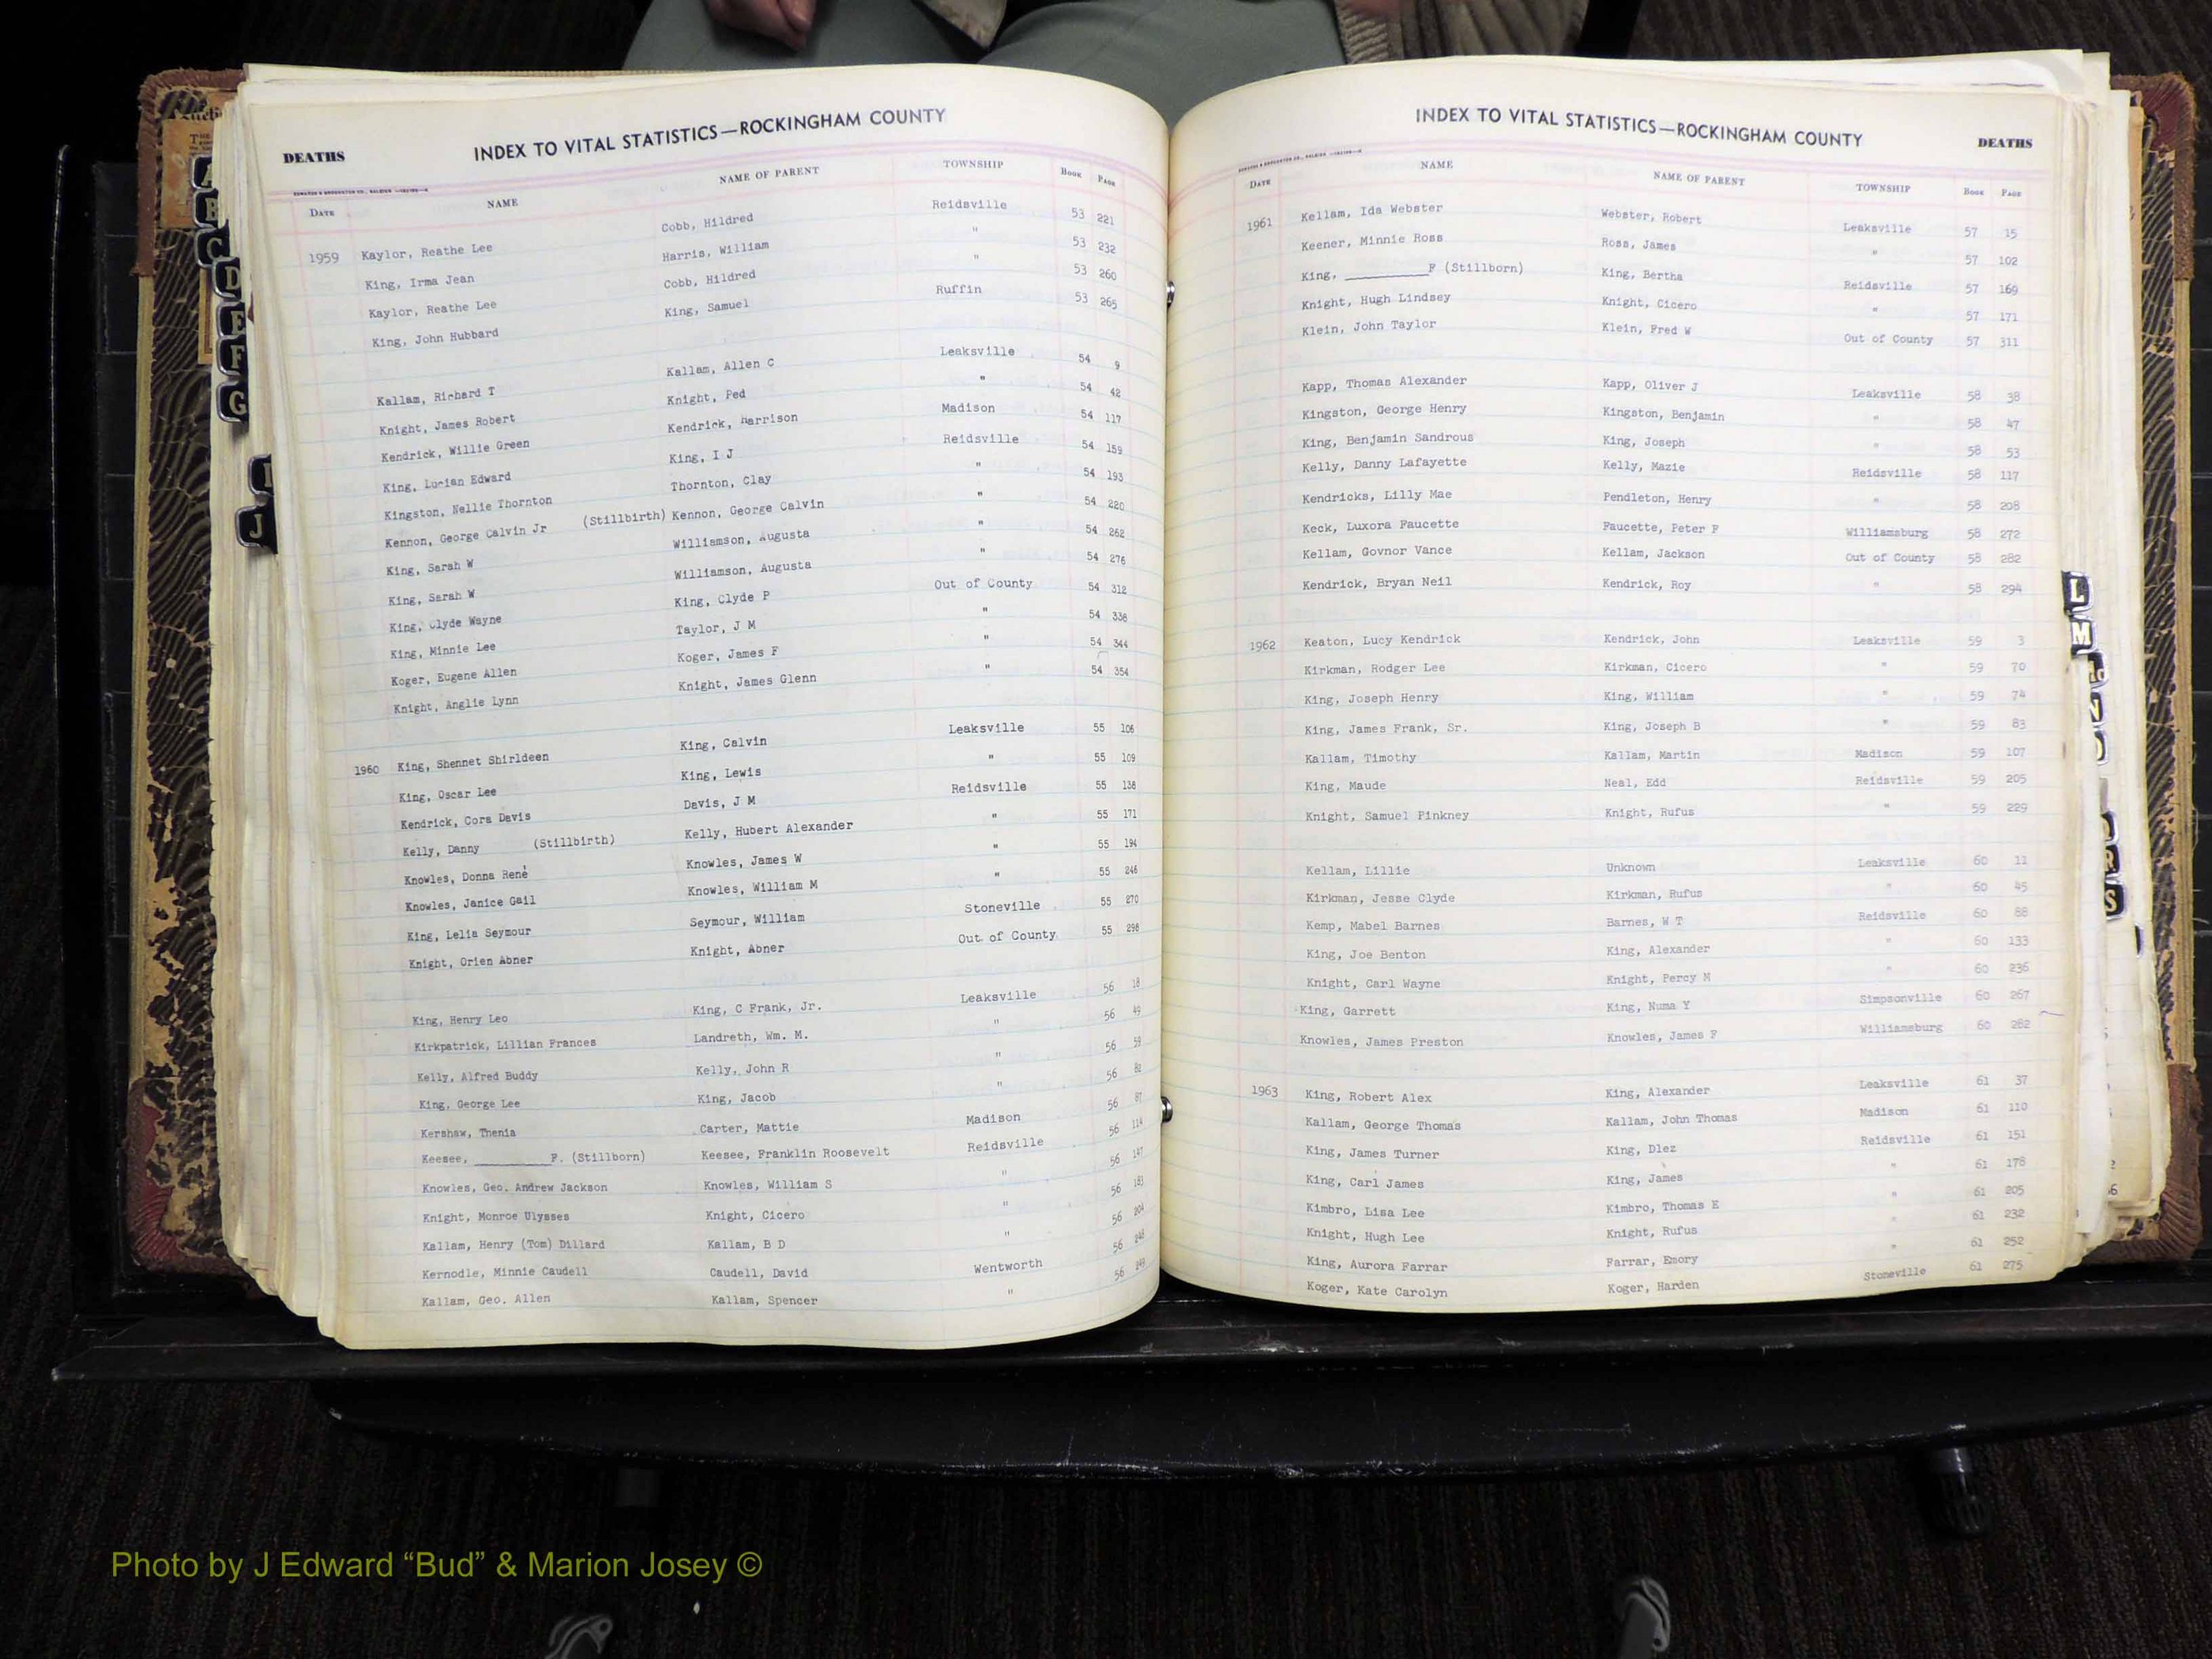 INDEX TO VITAL STATISTICS—ROCKINGHAM COUNTY
DEATHS
DATE NAME NAME OF PARENT TOWNSHIP BOOK PAGE
1959 Kaylor, Reathe Lee Cobb, Hildred Reidsville 53 221
King, Irma Jean Harris, William " 53 232
Kaylor, Reathe Lee Cobb, Hildred " 53 260
King, John Hubbard King, Samuel Ruffin 53 265
Kallam, Richard T Kallam, Allen C Leaksville 54 9
Knight, James Robert Knight, Ped " 54 42
Kendrick, Willie Green Kendrick, Harrison Madison 54 117
King, Lucian Edward King, I J Reidsville 54 159
Kingston, Nellie Thornton Thornton, Clay " 54 193
Kennon, George Calvin Jr (Stillbirth) Kennon, George Calvin " 54 220
King, Sarah W Williamson, Augusta " 54 262
King, Sarah W Williamson, Augusta " 54 276
King, Clyde Wayne King, Clyde P Out of County 54 312
King, Minnie Lee Taylor, J M " 54 338
Koger, Eugene Allen Koger, James F " 54 344
Knight, Anglie Lynn Knight, James Glenn " 54 354
1960 King, Shennet Shirldeen King, Calvin Leaksville 55 106
King, Oscar Lee King, Lewis " 55 109
Kendrick, Cora Davis Davis, J M Reidsville 55 138
Kelly, Danny (Stillbirth) Kelly, Hubert Alexander " 55 171
Knowles, Donna René Knowles, James W " 55 194
Knowles, Janice Gail Knowles, William M " 55 246
King, Lelia Seymour Seymour, William Stoneville 55 270
Knight, Orien Abner Knight, Abner Out of County 55 298
King, Henry Leo King, C Frank, Jr. Leaksville 56 18
Kirkpatrick, Lillian Frances Landreth, Wm. M. " 56 49
Kelly, Alfred Buddy Kelly, John R " 56 59
King, George Lee King, Jacob " 56 82
Kershaw, Thenia Carter, Mattie Madison 56 87
Keesee, ________F. (Stillborn) Keesee, Franklin Roosevelt Reidsville 56 114
Knowles, Geo. Andrew Jackson Knowles, William S " 56 147
Knight, Monroe Ulysses Knight, Cicero " 56 183
Kallam, Henry (Tom) Dillard Kallam, B D " 56 204
Kernodle, Minnie Caudell Caudell, David Wentworth 56 248
Kallam, Geo. Allen Kallam, Spencer " 56 249
INDEX TO VITAL STATISTICS—ROCKINGHAM COUNTY
DEATHS
DATE NAME NAME OF PARENT TOWNSHIP BOOK PAGE
1961 Kellam, Ida Webster Webster, Robert Leaksville 57 15
Keener, Minnie Ross Ross, James " 57 102
King, ________F (Stillborn) King, Bertha Reidsville 57 169
Knight, Hugh Lindsey Knight, Cicero " 57 171
Klein, John Taylor Klein, Fred W Out of County 57 311
Kapp, Thomas Alexander Kapp, Oliver J Leaksville 58 38
Kingston, George Henry Kingston, Benjamin " 58 47
King, Benjamin Sandrous King, Joseph " 58 53
Kelly, Danny Lafayette Kelly, Mazie Reidsville 58 117
Kendricks, Lilly Mae Pendleton, Henry " 58 208
Keck, Luxora Faucette Faucette, Peter F Williamsburg 58 272
Kellam, Govnor Vance Kellam, Jackson Out of County 58 282
Kendrick, Bryan Neil Kendrick, Roy " 58 294
1962 Keaton, Lucy Kendrick Kendrick, John Leaksville 59 3
Kirkman, Rodger Lee Kirkman, Cicero " 59 70
King, Joseph Henry King, William " 59 74
King, James Frank, Sr. King, Joseph B " 59 83
Kallam, Timothy Kallam, Martin Madison 59 107
King, Maude Neal, Edd Reidsville 59 205
Knight, Samuel Pinkney Knight, Rufus " 59 229
Kellam, Lillie Unknown Leaksville 60 11
Kirkman, Jesse Clyde Kirkman, Rufus " 60 45
Kemp, Mabel Barnes Barnes, W T Reidsville 60 88
King, Joe Benton King, Alexander " 60 133
Knight, Carl Wayne Knight, Percy M " 60 236
King, Garrett King, Numa Y Simpsonville 60 267
Knowles, James Preston Knowles, James F Williamsburg 60 282
1963 King, Robert Alex King, Alexander Leaksville 61 37
Kallam, George Thomas Kallam, John Thomas Madison 61 110
King, James Turner King, Dlez Reidsville 61 151
King, Carl James King, James " 61 178
Kimbro, Lisa Lee Kimbro, Thomas E " 61 205
Knight, Hugh Lee Knight, Rufus " 61 232
King, Aurora Farrar Farrar, Emory " 61 252
Koger, Kate Carolyn Koger, Harden Stoneville 61 275
A
B
C
D
E
F
G
J
L
M
N
R
S
Photo by J Edward “Bud” & Marion Josey ©